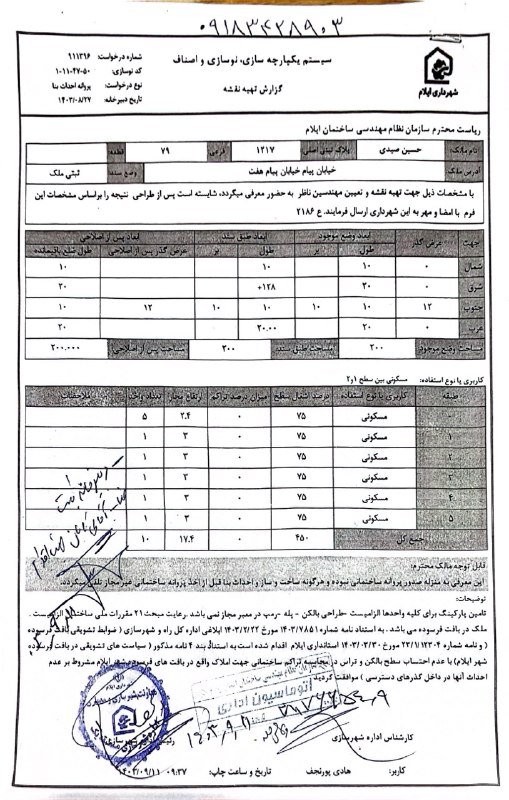 ۰۹۱۸۳۴۲۸۹۰۳
شهرداری ایلام
سیستم یکپارچه سازی، نوسازی و اصناف
گزارش تهیه نقشه
شماره درخواست: ۹۱۱۳۹۶
کد نوسازی: ۱۰۱۱-۴۷-۵۰
نوع درخواست: پروانه احداث بنا
تاریخ دبیرخانه: ۱۴۰۳/۰۸/۲۷
ریاست محترم سازمان نظام مهندسی ساختمان ایلام
نام مالک: حسین صیدی پلاک ثبتی اصلی ۱۲۱۷ فرعی ۷۹ قطعه
آدرس ملک خیابان پیام خیابان پیام هفت وضع سند ثبتی ملک
با مشخصات ذیل جهت تهیه نقشه و تعیین مهندسین ناظر به حضور معرفی میگردد، شایسته است پس از طراحی نتیجه را براساس مشخصات این
فرم با امضا و مهر به این شهرداری ارسال فرمایند. ع ۲۱۸۶
جهت عرض گذر ابعاد وضع موجود ابعاد طبق سند ابعاد پس از اصلاحی
طول بر طول بر عرض گذر پس از اصلاحی طول ضلع باقیمانده
شمال ۰ ۱۰ ۱۰ ۱۰
شرق ۰ ۲۰ ۱۲۸+ ۲۰
جنوب ۱۲ ۱۰ ۱۰ ۱۰ ۱۰ ۱۲ ۱۰
غرب ۰ ۲۰ ۲۰.۰۰ ۲۰
مساحت وضع موجود ۲۰۰ مساحت طبق سند ۲۰۰ مساحت پس از اصلاحی ۲۰۰.۰۰۰
کاربری یا نوع استفاده: مسکونی بین سطح ۱و۲
طبقه کاربری یا نوع استفاده درصد اشغال سطح میزان درصد تراکم ارتفاع مجاز تعداد واحد ملاحظات
۰ مسکونی ۷۵ ۰ ۲.۴ ۵
۱ مسکونی ۷۵ ۰ ۳ ۱
۲ مسکونی ۷۵ ۰ ۳ ۱
۳ مسکونی ۷۵ ۰ ۳ ۱
۴ مسکونی ۷۵ ۰ ۳ ۱
۵ مسکونی ۷۵ ۰ ۳ ۱
جمع کل ۴۵۰ ۰ ۱۷.۴ ۱۰
قابل توجه مالک محترم:
این معرفی به منزله صدور پروانه ساختمانی نبوده و هرگونه ساخت و ساز و احداث بنا قبل از اخذ پروانه ساختمانی غیر مجاز تلقی میگردد.
توضیحات:
تامین پارکینگ برای کلیه واحدها الزامیست -طراحی بالکن - پله -رمپ در معبر مجاز نمی باشد .رعایت مبحث ۲۱ مقررات ملی ساختمان الزامیست .
ملک در بافت فرسوده می باشد. به استناد نامه شماره ۱۴۰۳/۷۸۵۱ مورخ ۱۴۰۳/۲/۲۲ ابلاغی اداره کل راه و شهرسازی ( ضوابط تشویقی بافت فرسوده
) و نامه شماره ۲۲/۱/۱۲۳۰۴ مورخ ۱۴۰۳/۰۳/۳۰ استانداری ایلام اقدام شده است به استناد بند ۴ نامه مذکور ( سیاست های تشویقی در بافت فرسوده
شهر ایلام) با عدم احتساب سطح بالکن و تراس در محاسبه تراکم ساختمانی جهت املاک واقع در بافت های فرسوده شهر ایلام مشروط بر عدم
احداث آنها در داخل گذرهای دسترسی ) موافقت گردید
اتوماسیون اداری
۱۴۰۳,۹,۱۱
کارشناس اداره شهرسازی
کاربر: هادی پورنجف تاریخ و ساعت چاپ: ۰۹:۳۷ ۱۴۰۳/۰۹/۱۱